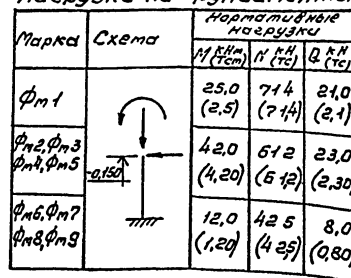 Нагрузка на фундаменты
Марка
Схема
Нормативные
нагрузки
М кНм (тсм)
N кН (тс)
Q кН (тс)
Фm1
25,0 (2,5)
714 (71,4)
21,0 (2,1)
Фm2, Фm3
Фm4, Фm5
-0,150
42,0 (4,20)
612 (61,2)
23,0 (2,30)
Фm6, Фm7
Фm8, Фm9
12,0 (1,20)
425 (42,5)
8,0 (0,80)